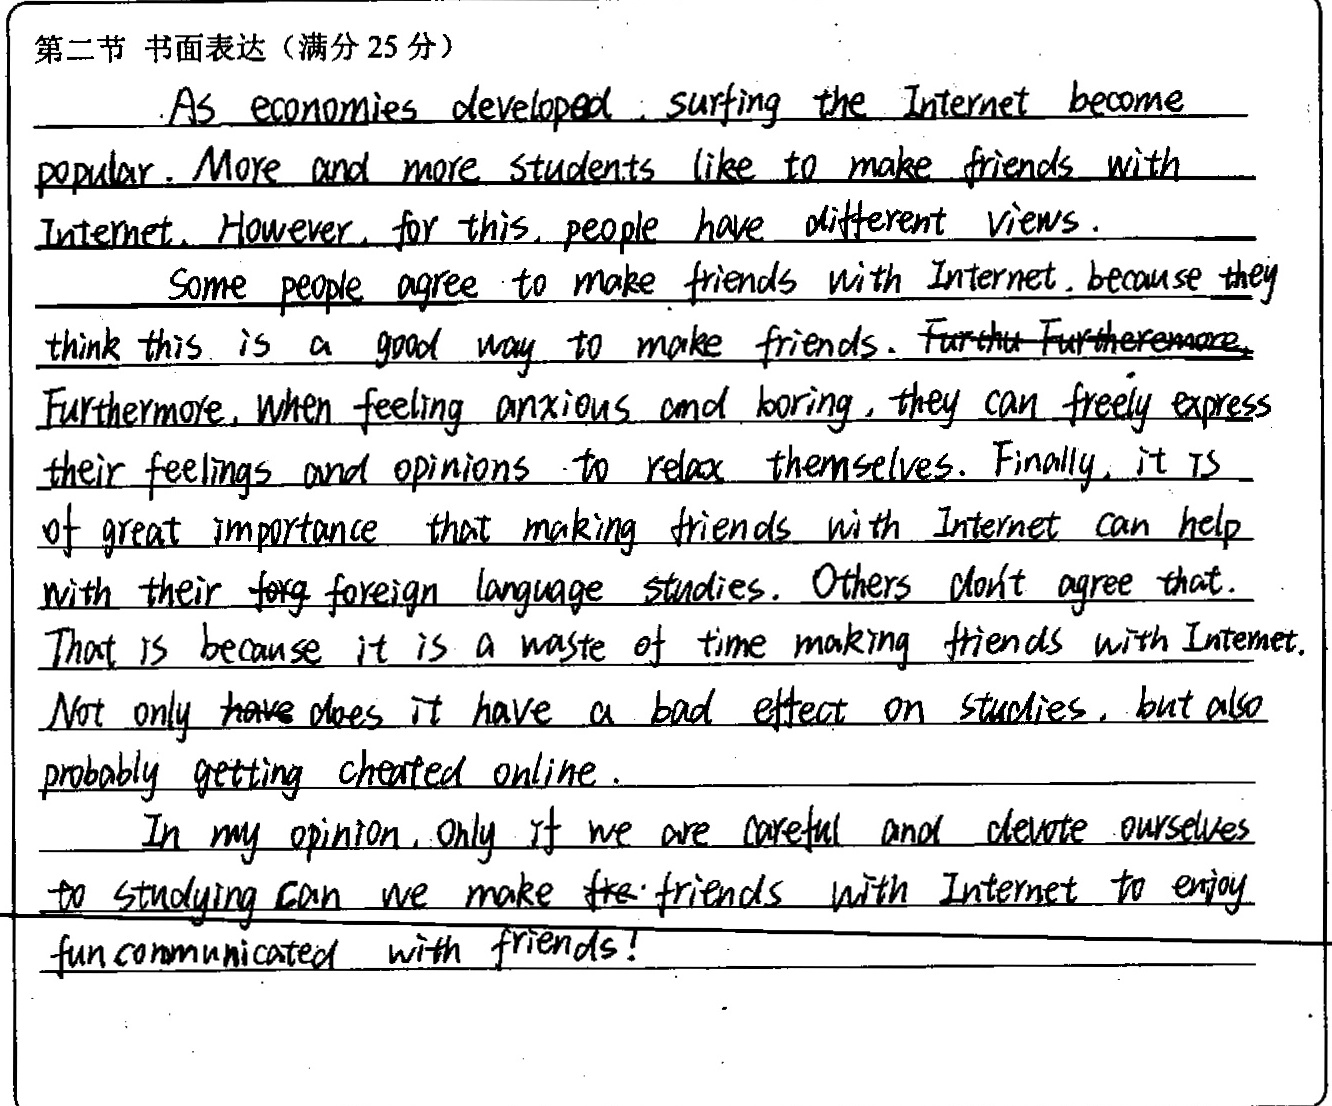 第二节 书面表达（满分 25 分）
As economies developed, surfing the Internet become
popular. More and more students like to make friends with
Internet. However, for this, people have different views.
Some people agree to make friends with Internet, because they
think this is a good way to make friends. Furthu Furtheremore,
Furthermore, when feeling anxious and boring, they can freely express
their feelings and opinions to relax themselves. Finally, it is
of great importance that making friends with Internet can help
with their forg foreign language studies. Others don't agree that.
That is because it is a waste of time making friends with Internet.
Not only have does it have a bad effect on studies, but also
probably getting cheated online.
In my opinion, only if we are careful and devote ourselves
to studying can we make fre friends with Internet to enjoy
fun communicated with friends!